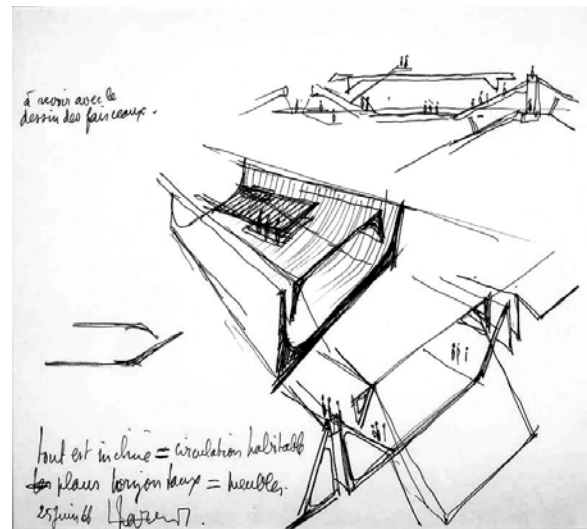 à revoir avec le
dessin des faisceaux.
tout est incliné = circulation habitable
plans horizontaux = meubles.
25 juin 66